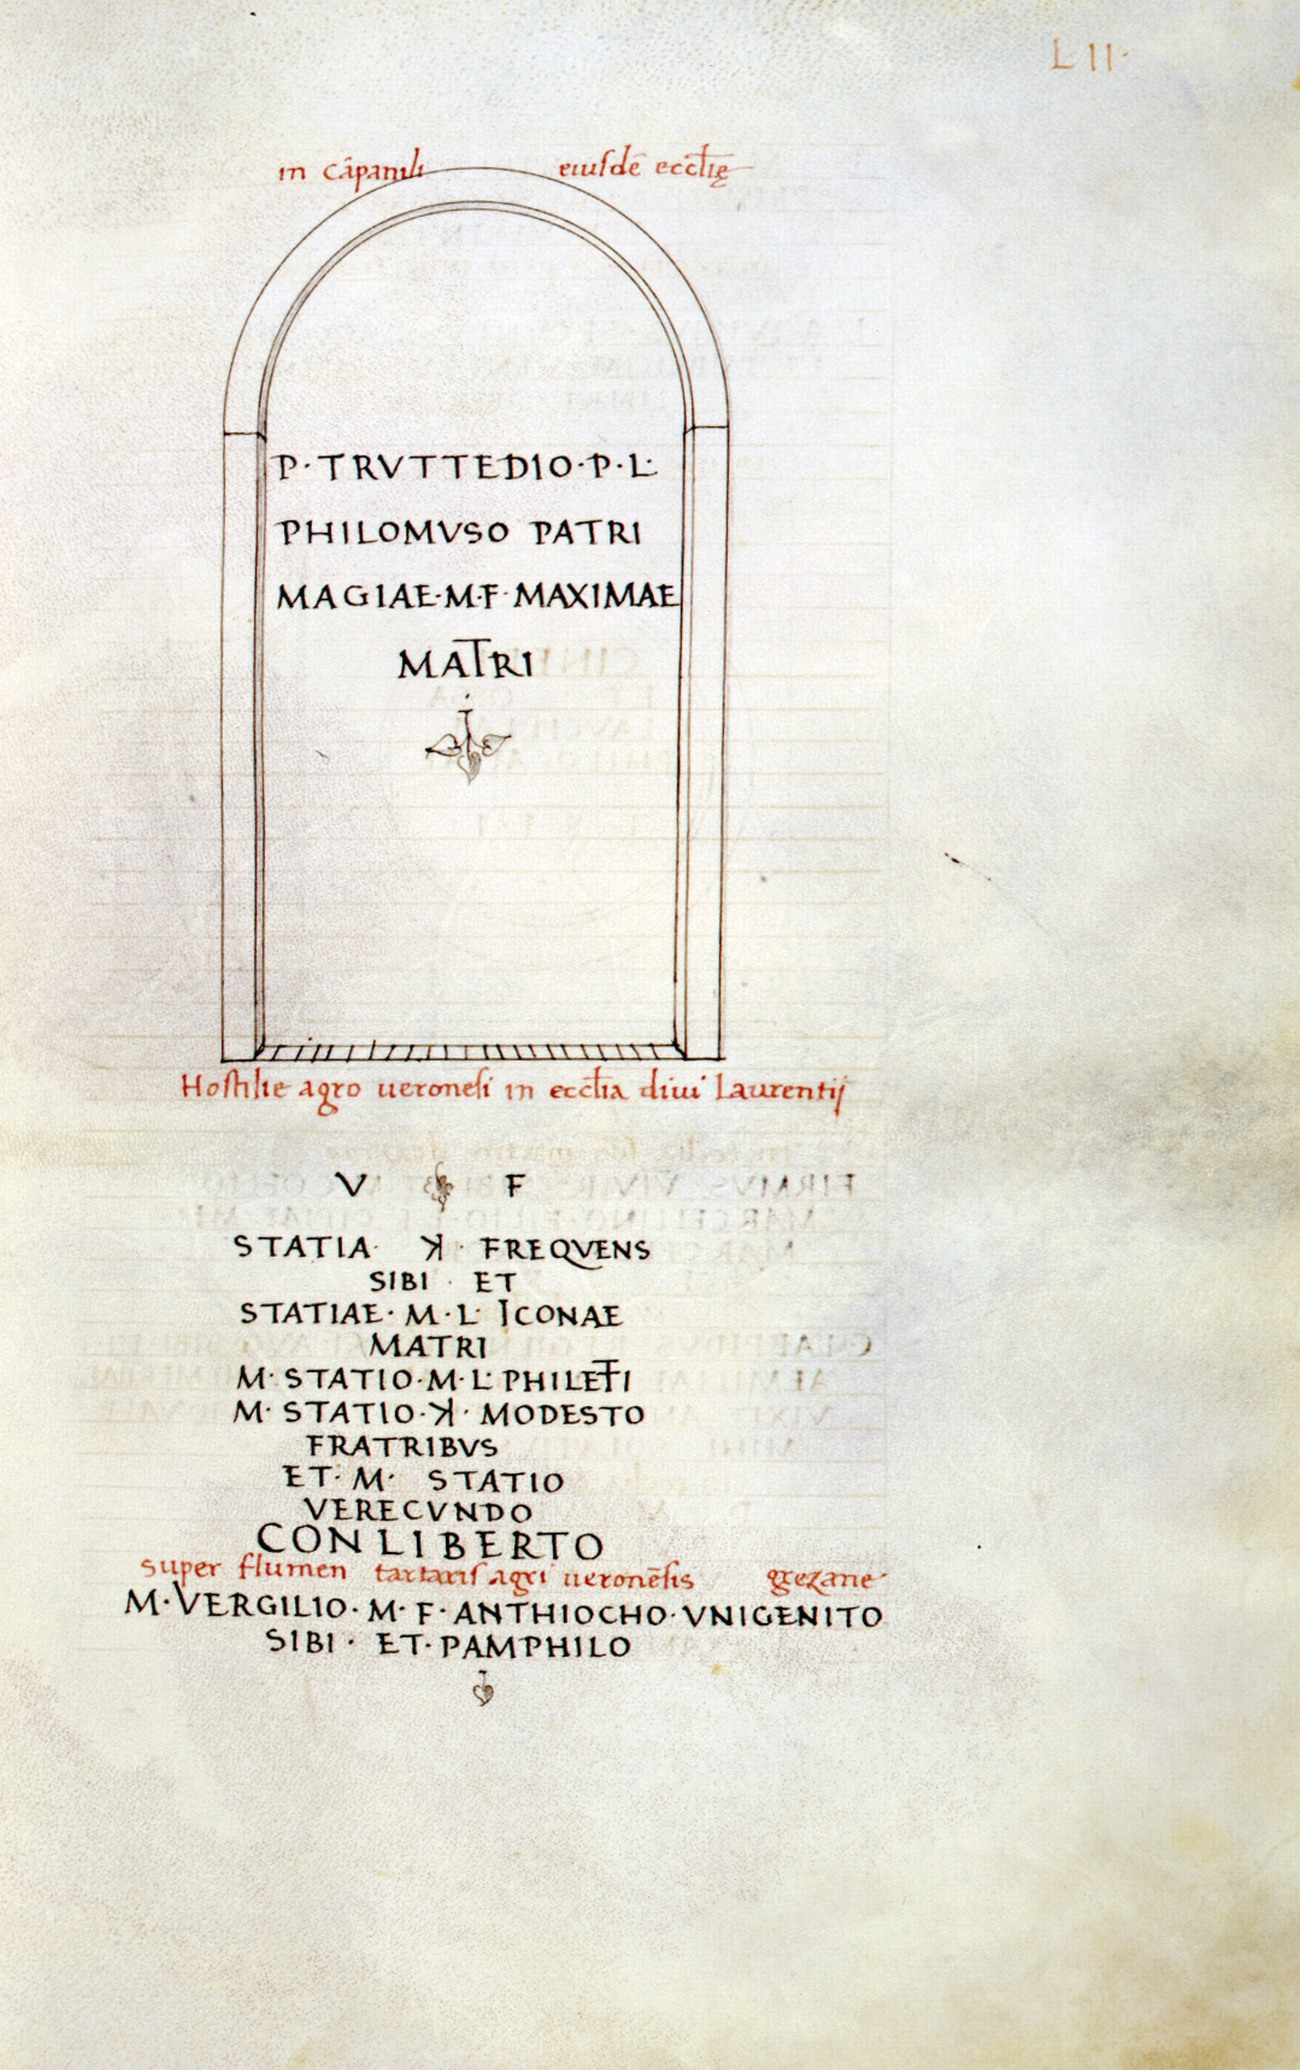 LII·
in cāpanili eiusdē eccl̄ię
P·TRVTTEDIO·P·L·
PHILOMVSO PATRI
MAGIAE·M·F·MAXIMAE
MATRI
Hostilie agro ueronesi in eccl̄ia diui Laurentij
V F
STATIA· ꓘ· FREQVENS
SIBI · ET
STATIAE· M·L· ICONAE
MATRI
M·STATIO·M·L·PHILETI
M·STATIO·ꓘ·MODESTO
FRATRIBVS
ET·M· STATIO
VERECVNDO
CONLIBERTO
super flumen tartaris agri ueronēsis grezane·
M·VERGILIO·M·F·ANTHIOCHO·VNIGENITO
SIBI· ET·PAMPHILO